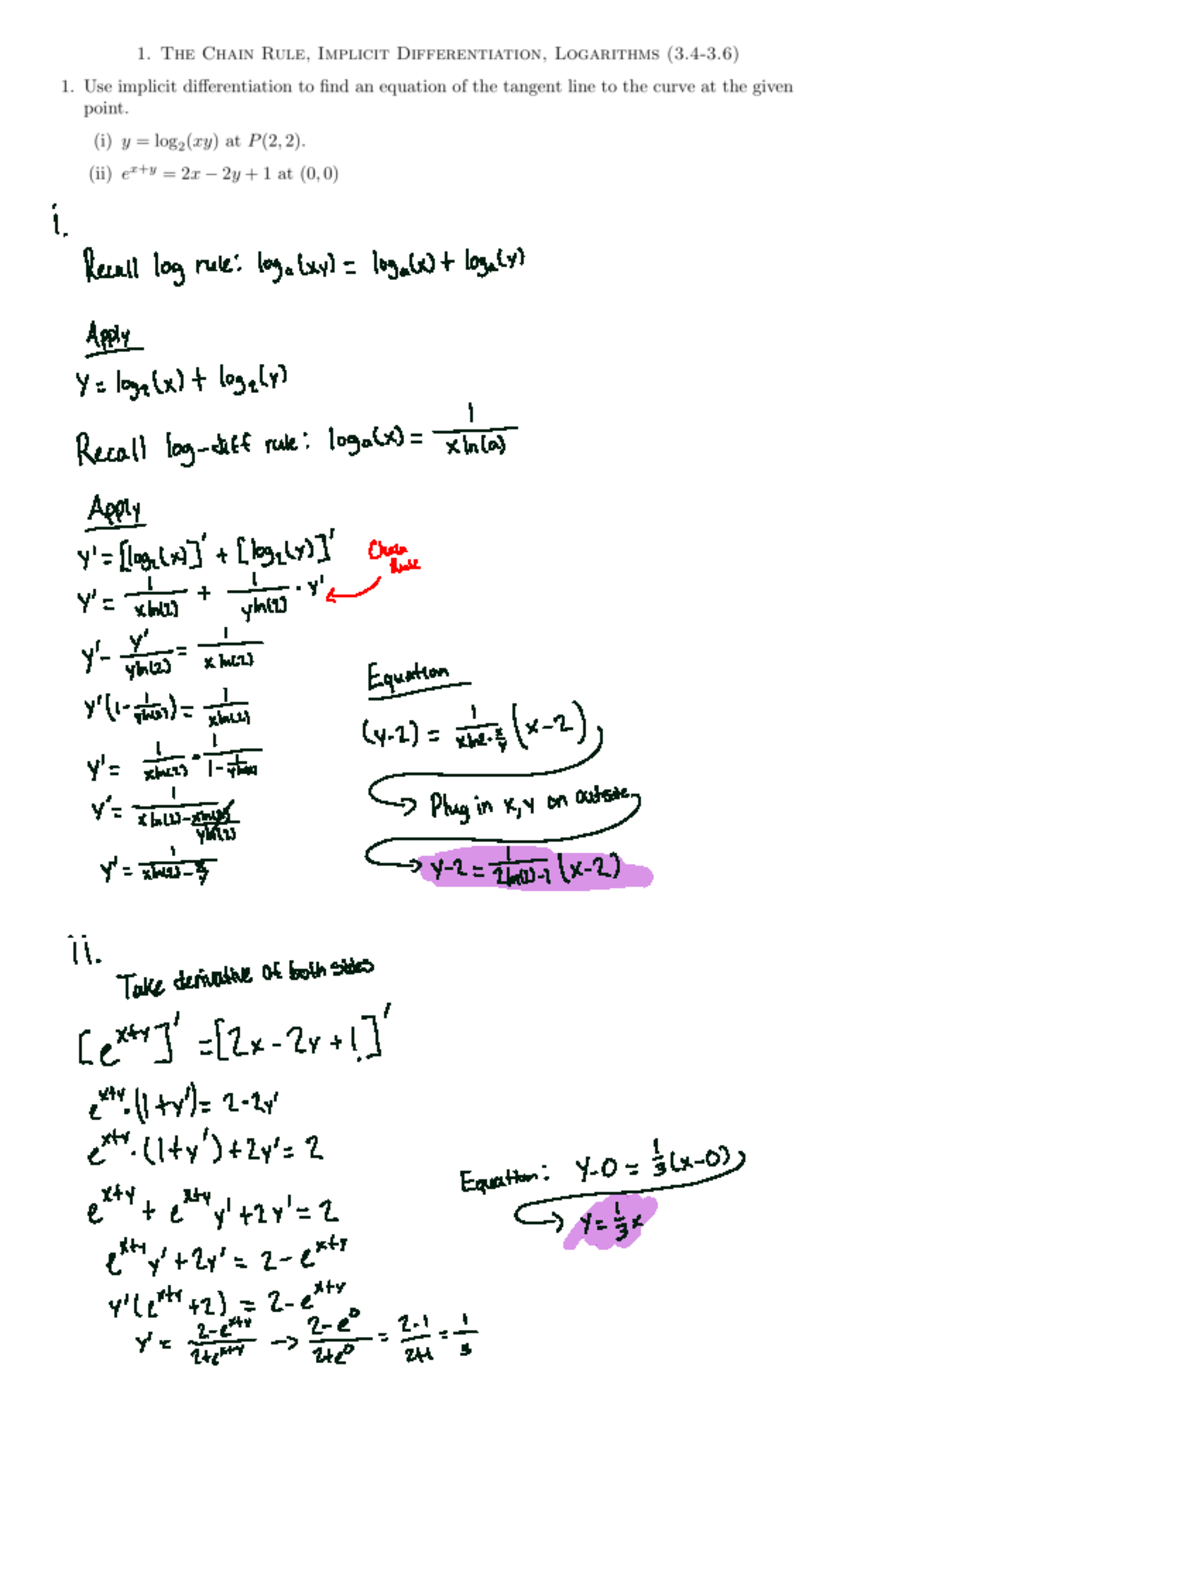 1. THE CHAIN RULE, IMPLICIT DIFFERENTIATION, LOGARITHMS (3.4-3.6)
1. Use implicit differentiation to find an equation of the tangent line to the curve at the given
point.
(i) y = log₂(xy) at P(2, 2).
(ii) e^{x+y} = 2x − 2y + 1 at (0, 0)
i.
Recall log rule: logₐ(xy) = logₐ(x) + logₐ(y)
Apply
y = log₂(x) + log₂(y)
Recall log-diff rule: logₐ(x) = 1/(x ln(a))
Apply
y' = [log₂(x)]' + [log₂(y)]'
Chain
Rule
y' = 1/(x ln(2)) + 1/(y ln(2)) · y'
y' - y'/(y ln(2)) = 1/(x ln(2))
y'(1 - 1/(y ln(2))) = 1/(x ln(2))
y' = 1/(x ln(2)) · 1/(1 - 1/(y ln(2)))
y' = 1/(x ln(2) - x ln(2)/(y ln(2)))
y' = 1/(x ln(2) - x/y)
Equation
(y-2) = 1/(x ln2 - x/y) (x-2)
Plug in x, y on outside
y-2 = 1/(2 ln(2)-1) (x-2)
ii.
Take derivative of both sides
[e^{x+y}]' = [2x - 2y + 1]'
e^{x+y} · (1+y') = 2-2y'
e^{x+y} · (1+y') + 2y' = 2
e^{x+y} + e^{x+y} y' + 2y' = 2
e^{x+y} y' + 2y' = 2 - e^{x+y}
y'(e^{x+y} + 2) = 2 - e^{x+y}
y' = (2-e^{x+y})/(2+e^{x+y}) → (2-e^0)/(2+e^0) = (2-1)/(2+1) = 1/3
Equation: y-0 = 1/3(x-0)
y = 1/3 x